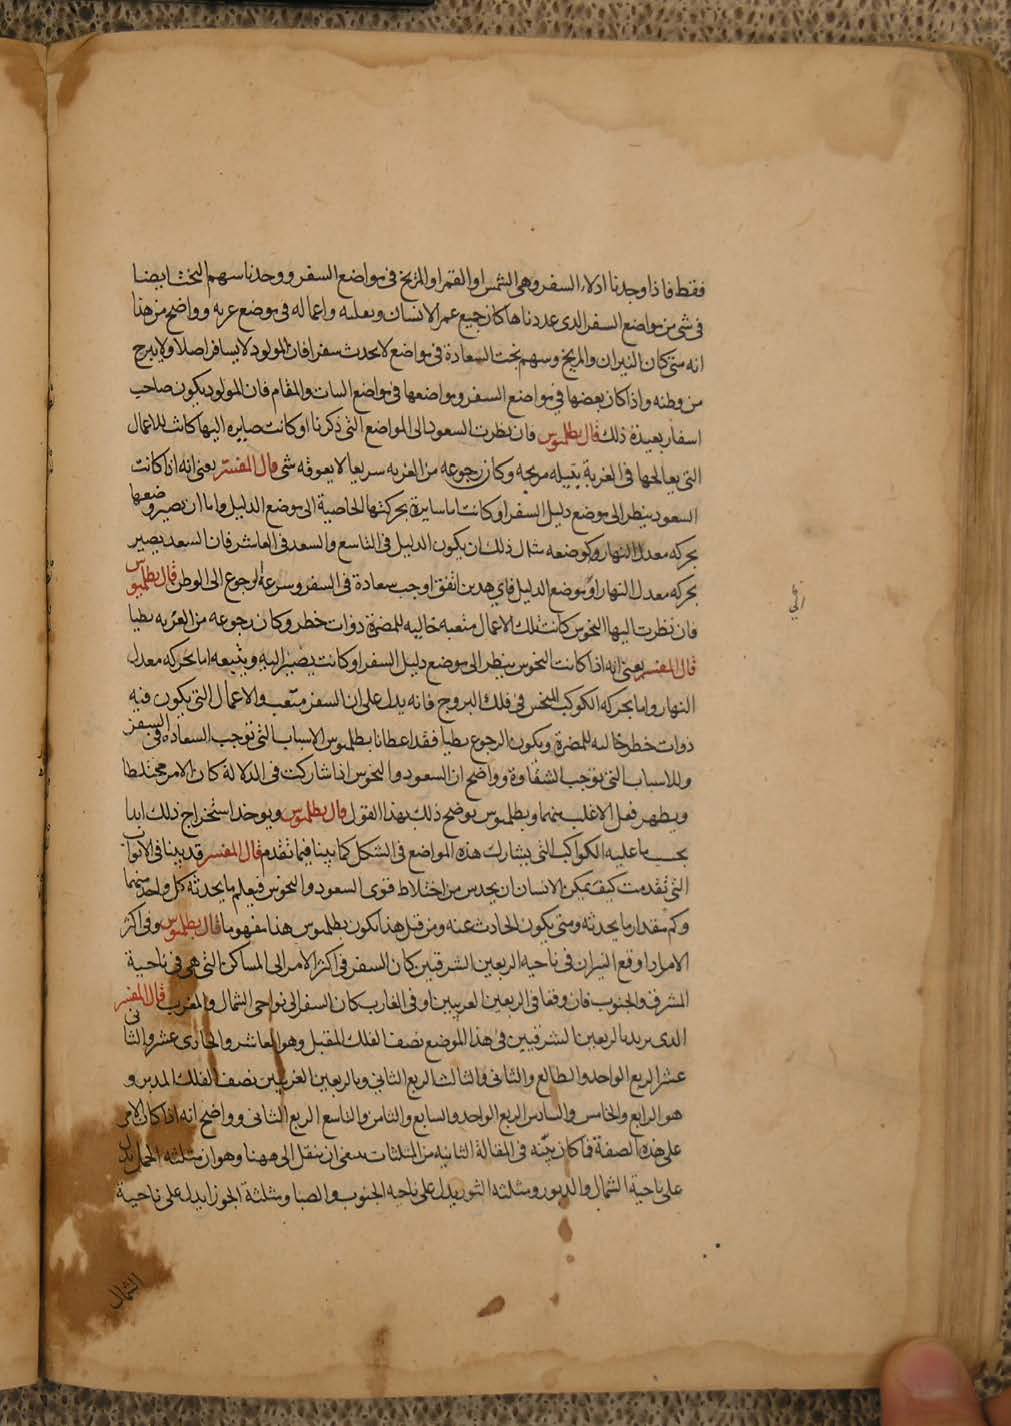 فقط فاذا وجدنا ادلاء السفر وهى الشمس او القمر او المريخ فى مواضع السفر ووجدنا سهم البخت ايضا
فى شى من مواضع السفر الذى عددناها كان جميع عمر الانسان وتقلبه واعماله فى موضع غربه وواضح من هذا
انه متى كان النيران والمريخ وسهم بخت السعادة فى مواضع لا تحدث سفرا فان المولود لا يسافر اصلا ولا يبرح
من وطنه واذا كان بعضها فى مواضع السفر ومواضعها فى مواضع الثبات والمقام فان المولود يكون صاحب
اسفار بعيدة ذلك قال بطلميوس فان نظرت السعود الى المواضع التى ذكرنا او كانت صايره اليها كانت للاعمال
التى يعالجها فى الغربة نبيله مربحه وكان رجوعه من الغربه سريعا لا يعوقه شى قال المفسر يعنى انه اذا كانت
السعود ينظر الى موضع دليل السفر او كانت اما سايرة بحركتها الخاصية الى موضع الدليل واما ان يصير وضعها
بحركه معدل النهار وكوضعه مثال ذلك ان يكون الدليل فى التاسع والسعد فى العاشر فان السعد يصير
بحركه معدل النهار او موضع الدليل فاى هدين اتفق اوجب سعادة فى السفر وسرعة الرجوع الى الوطن قال بطلميوس
فان نظرت اليها النحوس كانت تلك الاعمال متعبه جالبه للمضرة ذوات خطر وكان رجوعه من الغربه بطيا
قال المفسر يعنى انه اذا كانت النحوس ينظر الى موضع دليل السفر او كانت يصير اليه ويتبعه اما بحركه معدل
النهار واما بحركه الكوكب النحس فى فلك البروج فانه يدل على ان السفر متعب والاعمال التى يكون فيه
ذوات خطر جالبه للمضرة ويكون الرجوع بطيا فقد اعطانا بطلميوس الاسباب التى توجب السعاده فى السفر
وللاسباب التى توجب الشقاوة وواضح ان السعود والنحوس اذا شاركت فى الدلالة كان الامر مختلطا
ويظهر فعل الاغلب منهما وبطلميوس يوضح ذلك بهذا القول قال بطلميوس ويوخذ استخراج ذلك ابدا
بحسب ما عليه الكواكب التى يشارك هذه المواضع فى الشكل كما بينا فيما تقدم قال المفسر قد بينا فى الابواب
التى تقدمت كيف يمكن الانسان ان يحدس من اختلاط قوى السعود والنحوس فيعلم ما يحدثه كل واحد منهما
وكم مقدار ما يحدثه ومتى يكون الحادث عنه ومن قبل هذا يكون بطلميوس هذا مفهوما قال بطلميوس وفى اكثر
الامر اذا وقع النيران فى ناحيه الربعين الشرقيين كان السفر فى اكثر الامر الى المساكن التى هى فى ناحية
المشرق والجنوب فان وقعا فى الربعين الغربيين او فى الغارب كان السفر الى نواحى الشمال والمغرب قال المفسر
الذى يريد بالربعين الشرقيين فى هذا الموضع نصف الفلك المقبل وهو العاشر والحادى عشر والثانى
عشر الربع الواحد والطالع والثانى والثالث الربع الثانى وبالربعين الغربيين نصف الفلك المدبر و
هو الرابع والخامس والسادس الربع الواحد والسابع والثامن والتاسع الربع الثانى وواضح انه اذا كان الامر
على هذه الصفة فما كان بيّنه فى المقالة الثانيه من المثلثات ينبغى ان ينقل الى ههنا وهو ان مثلثه الحمل يدل
على ناحية الشمال والدبور ومثلثه الثور يدل على ناحيه الجنوب والصبا ومثلثة الجوزا يدل على ناحية
الشمال